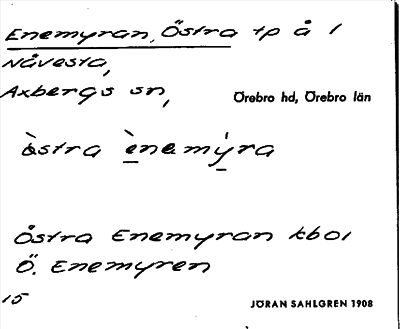 Enemyran, Östra tp å 1
Nåvesta,
Axbergs sn,
Örebro hd, Örebro län
òstra ènemýra
Östra Enemyran kb01
Ö. Enemyren
15
JÖRAN SAHLGREN 1908